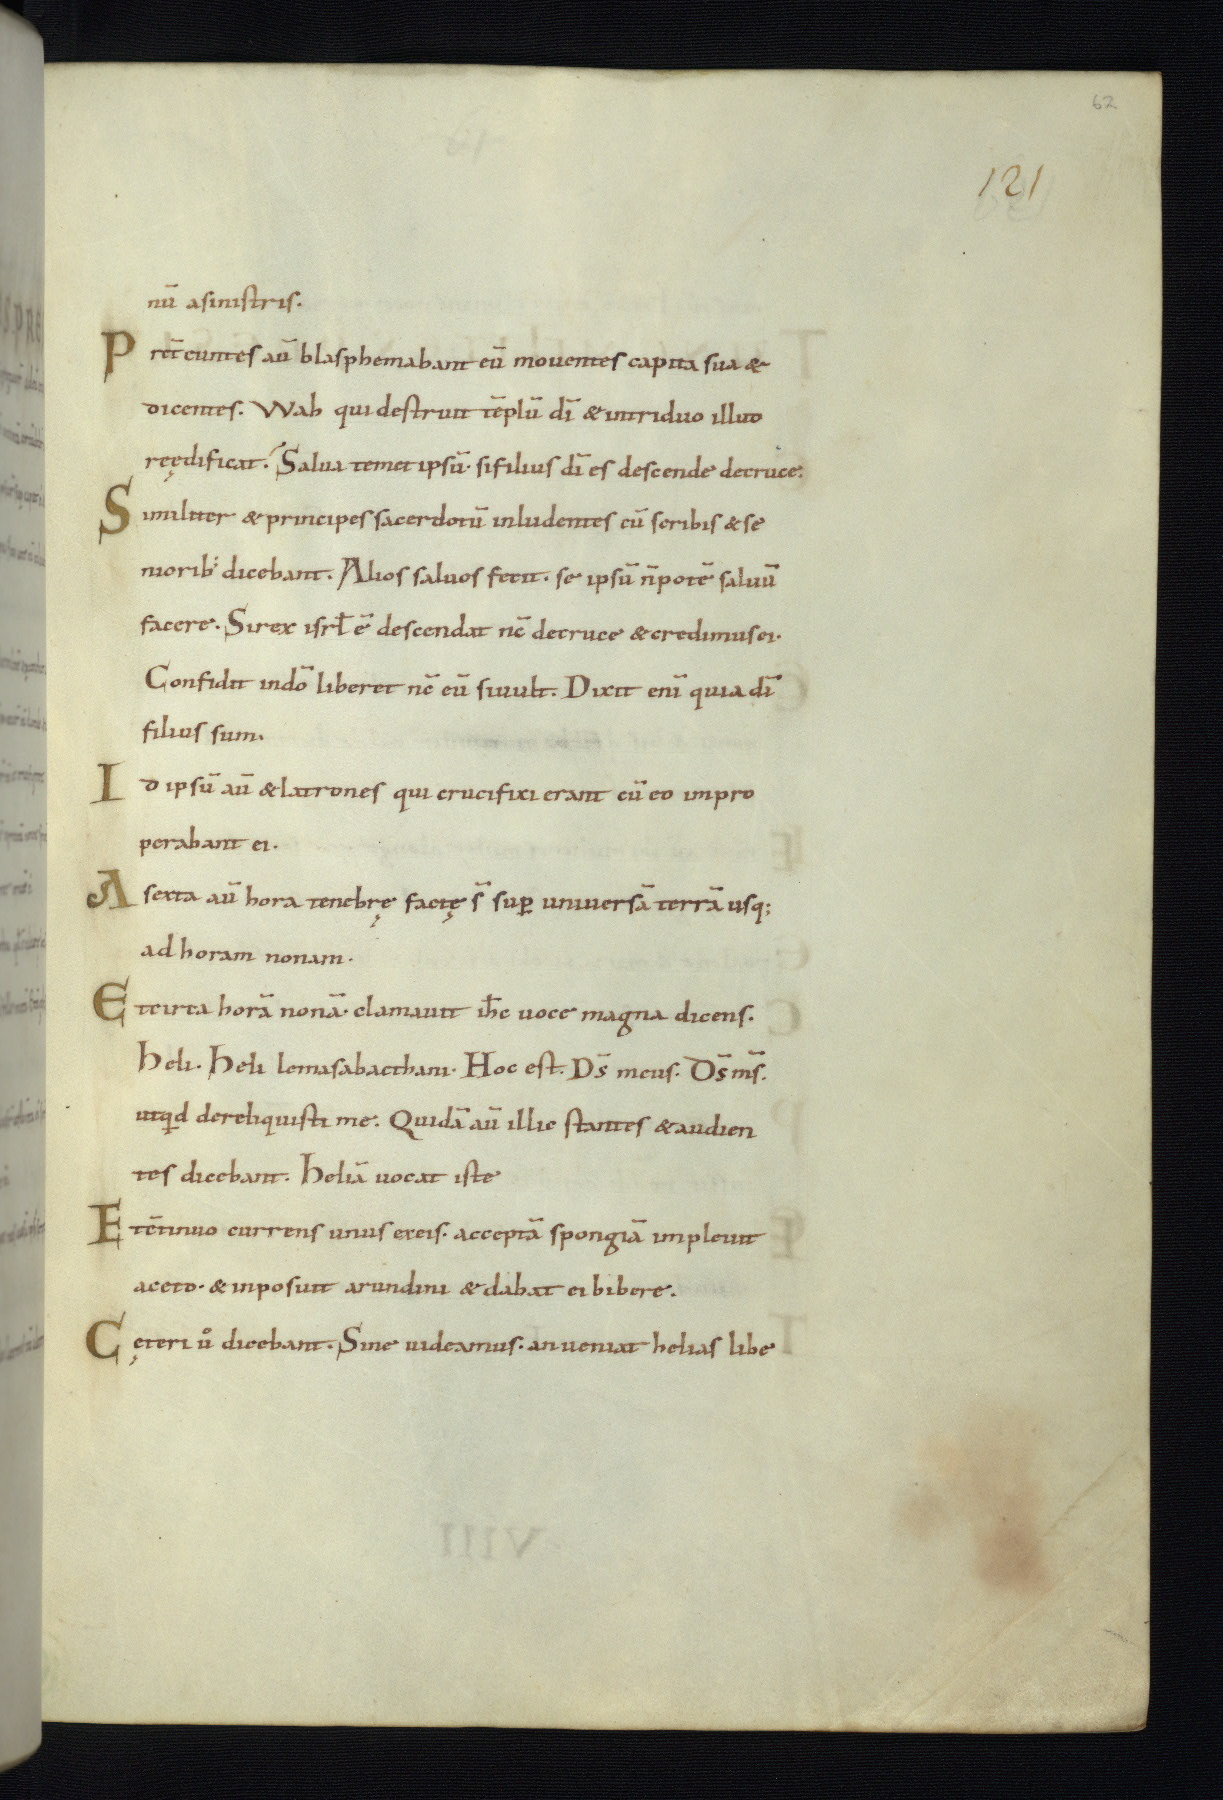 62
121
nū asinistris.
Pret̄euntes aū blasphemabant eū mouentes capita sua &
dicentes. Wah qui destruit tēplū dī & intriduo illud
reędificat. Salua temet ipsū. sifilius dī es descende decruce.
Similiter & principes sacerdotū inludentes cū scribis & se
niorib; dicebant. Alios saluos fecit. se ipsū n̄ potē saluū
facere. Sirex isrl̄ ē descendat nc̄ decruce & credimus ei.
Confidit indō liberet nc̄ eū siuult. Dixit enī quia dī
filius sum.
Id ipsū aū & latrones qui crucifixi erant cū eo impro
perabant ei.
A sexta aū hora tenebrę factę s̄ sup̲ uniuersā terrā usq;
ad horam nonam.
Et circa horā nonā. clamauit ih̄c uoce magna dicens.
Heli. Heli lemasabacthani. Hoc est. Ds̄ meus. Ds̄ ms̄.
utqd dereliquisti me. Quidā aū illic stantes & audien
tes dicebant. Heliā uocat iste
Et c̄tinuo currens unus exeis. acceptā spongiā impleuit
aceto. & inposuit arundini & dabat ei bibere.
Cęteri uͦ dicebant. Sine uideamus. an ueniat helias libe
VIII